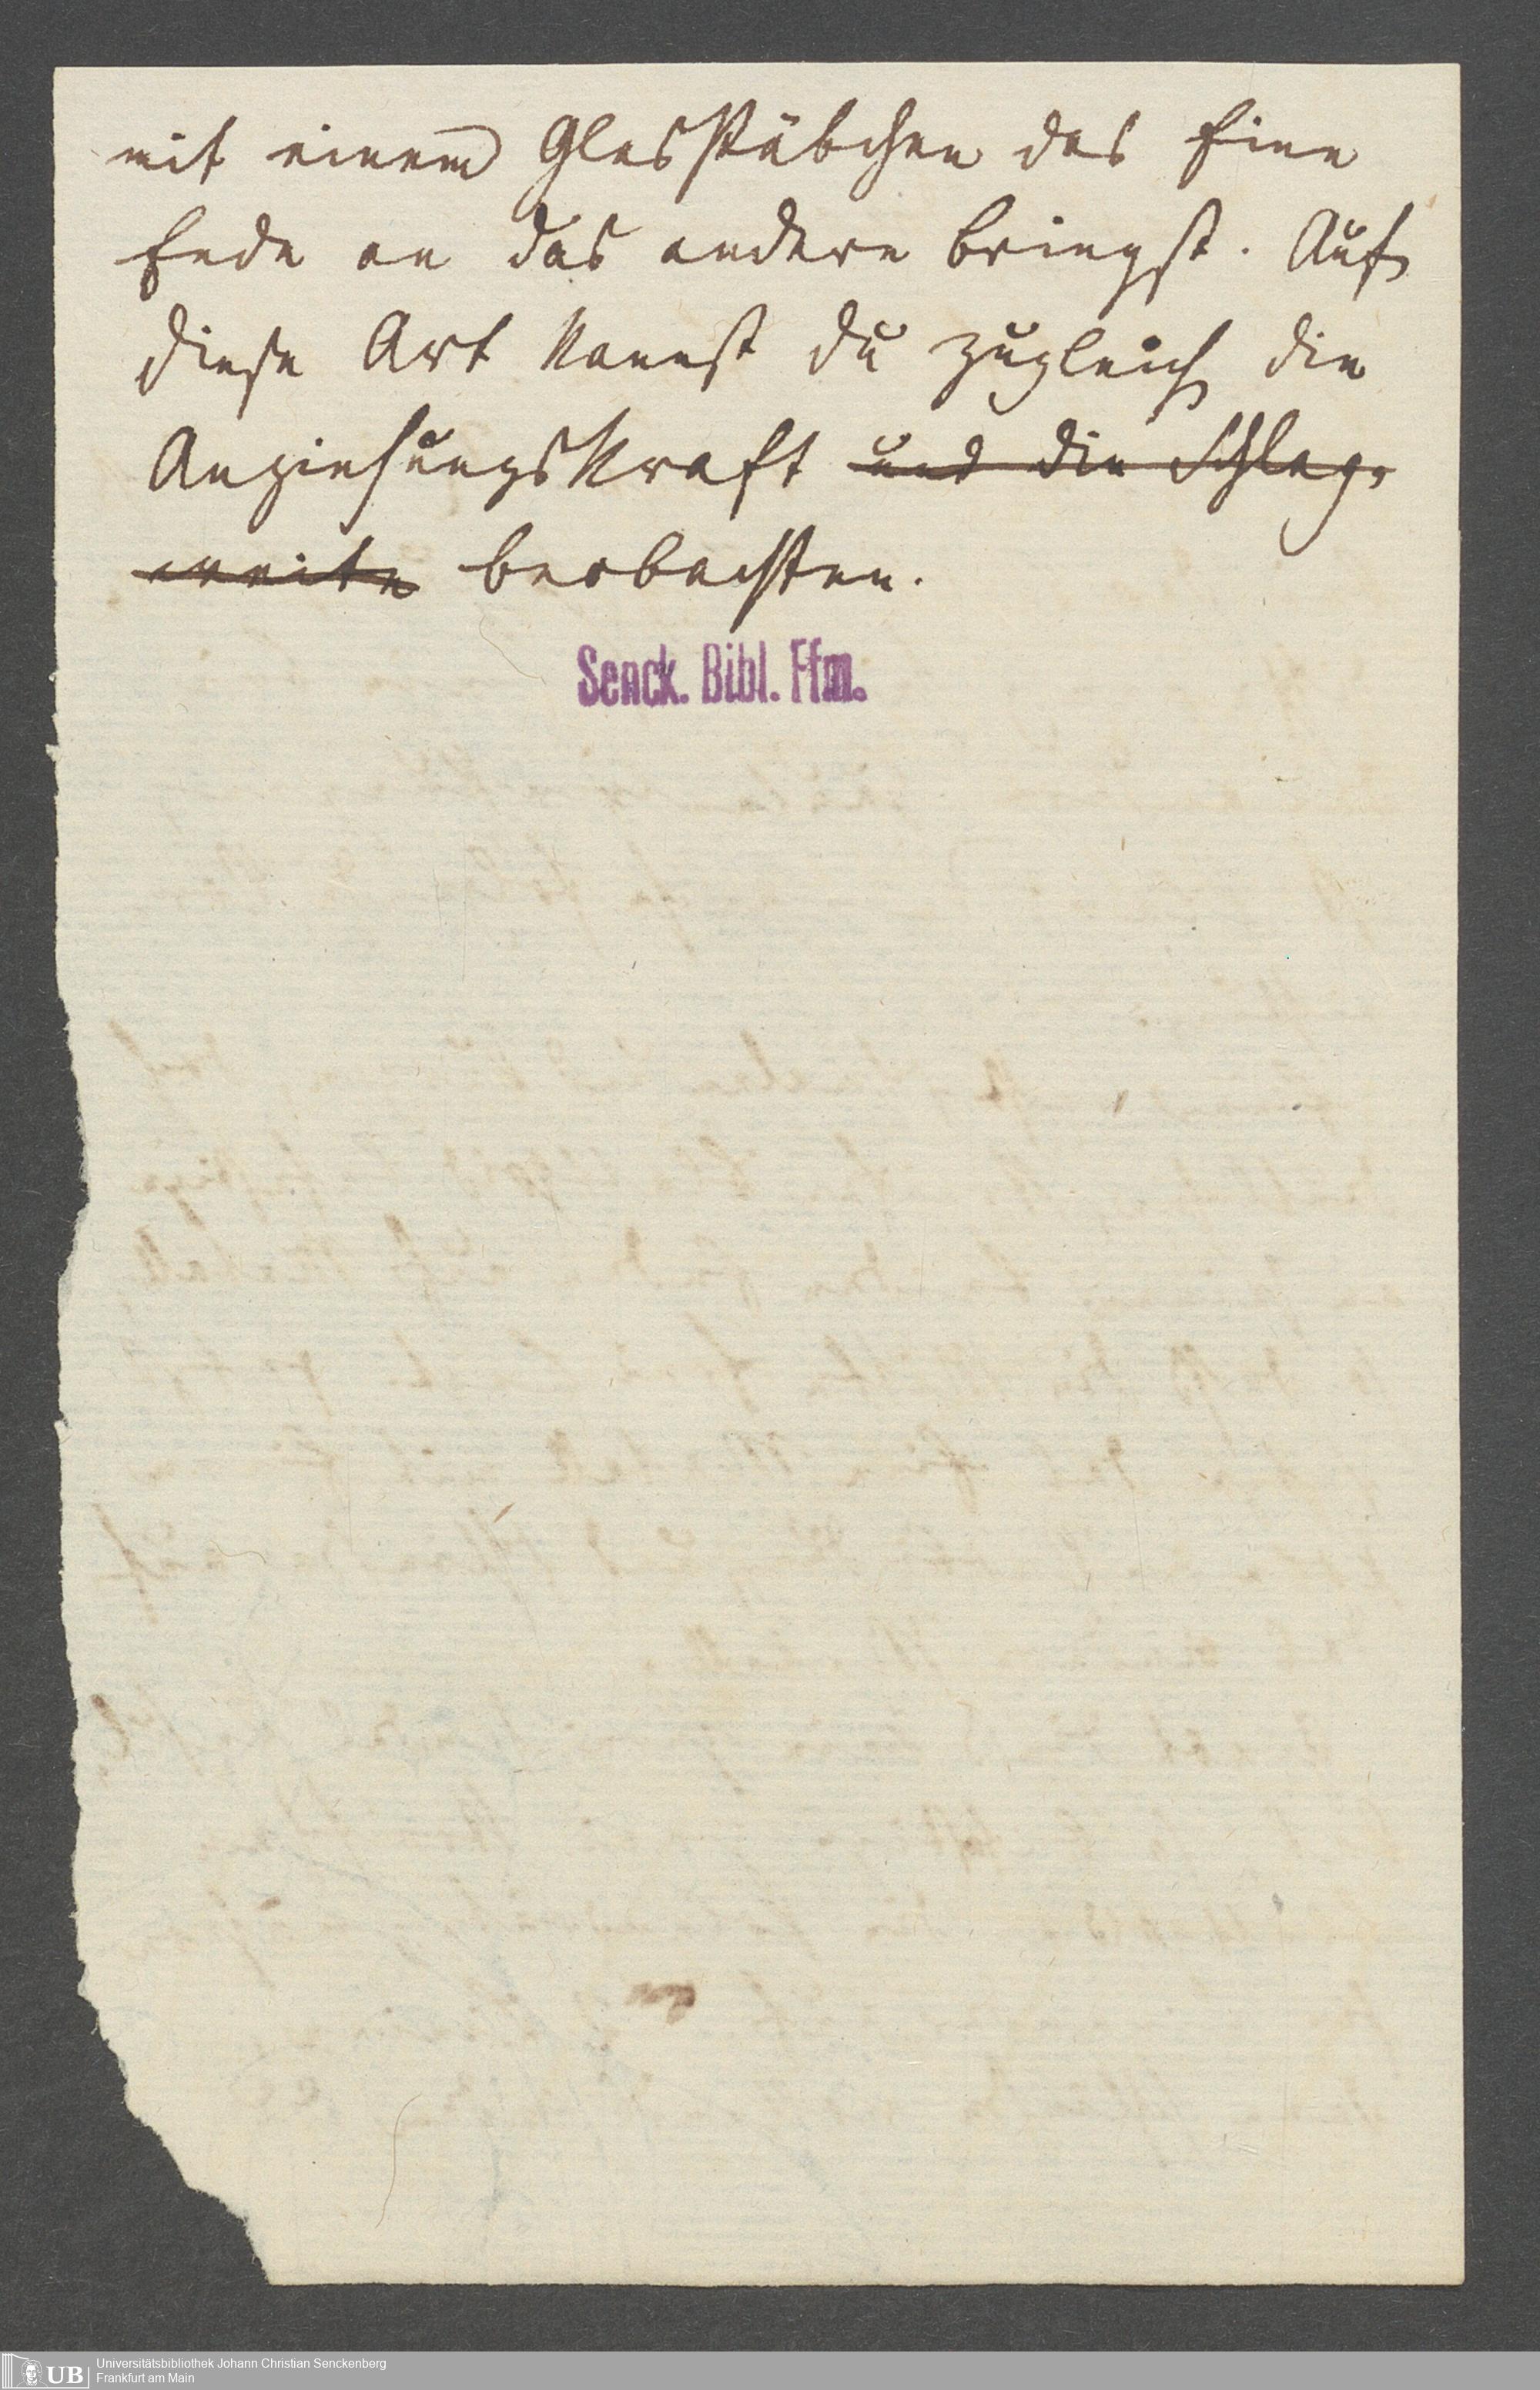 mit einem Glasstäbchen das Eine
Ende an das andere bringst. Auf
diese Art kannst du zugleich die
Anziehungskraft und die Schlag-
weite beobachten.
Senck. Bibl. Ffm.
UB
Universitätsbibliothek Johann Christian Senckenberg
Frankfurt am Main